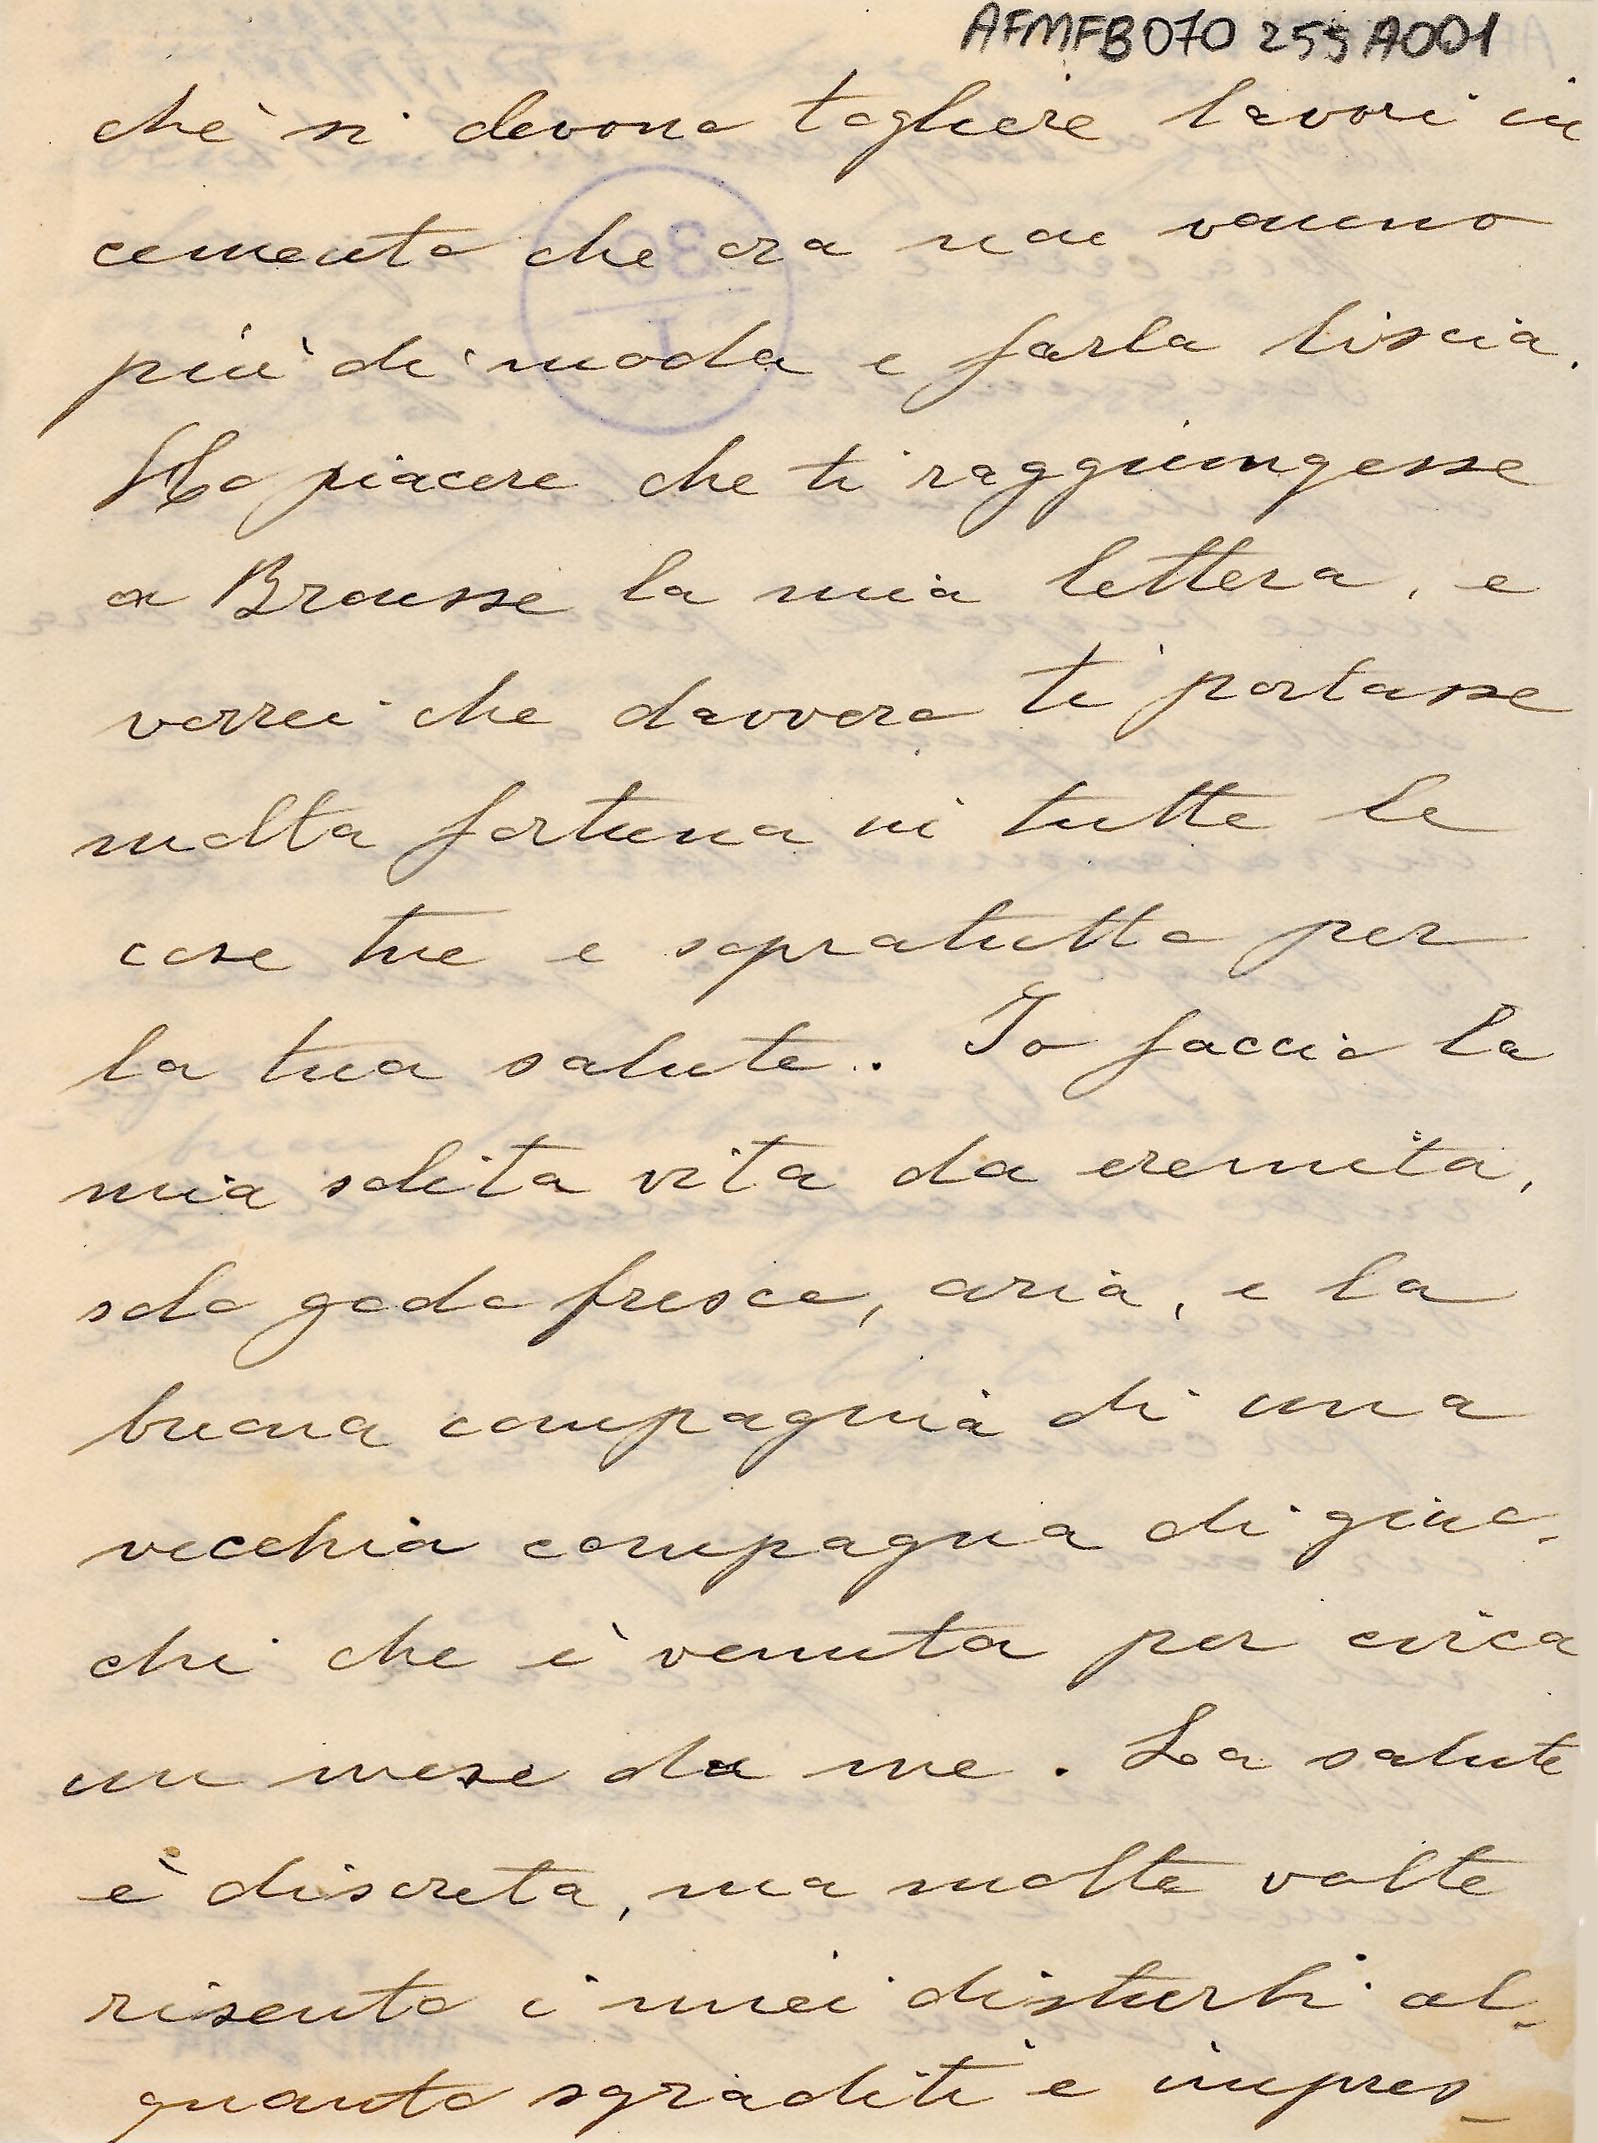 AFMFB070 255 A001
chè si devono togliere lavori in
cemento che ora non vanno
più di moda e farla liscia.
Ho piacere che ti raggiungesse
a Brousse la mia lettera, e
vorrei che davvero ti portasse
molta fortuna in tutte le
cose tue e sopratutto per
la tua salute. Io faccio la
mia solita vita da eremita,
solo godo fresco, aria, e la
buona compagnia di una
vecchia compagna di giuo-
chi che è venuta per circa
un mese da me. La salute
è discreta, ma molte volte
risento i miei disturbi al-
quanto sgraditi e impres-